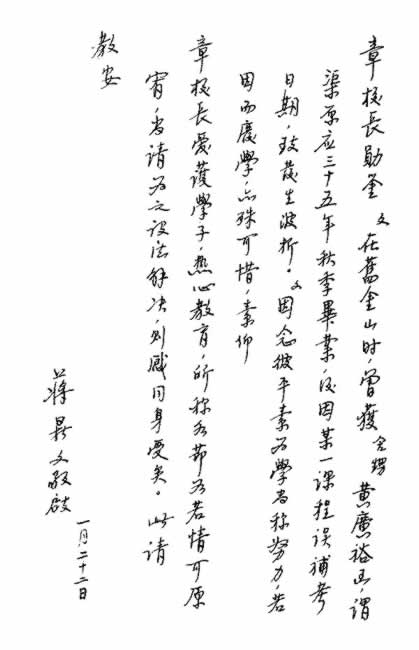 章校長勛鉴 文在舊金山时，曾獲舍甥黄廣裕函，謂
渠原应三十五年秋季畢業，後因某一課程误補考
日期，致發生波折。文因念彼平素为學尚称努力，若
因而廢學，亦殊可惜，素仰
章校長愛護學子，熱心教育，所称各节如若情可原
宥，尚請为之设法解决，则感同身受矣。此請
教安
蔣 文敬啟
一月二十二日